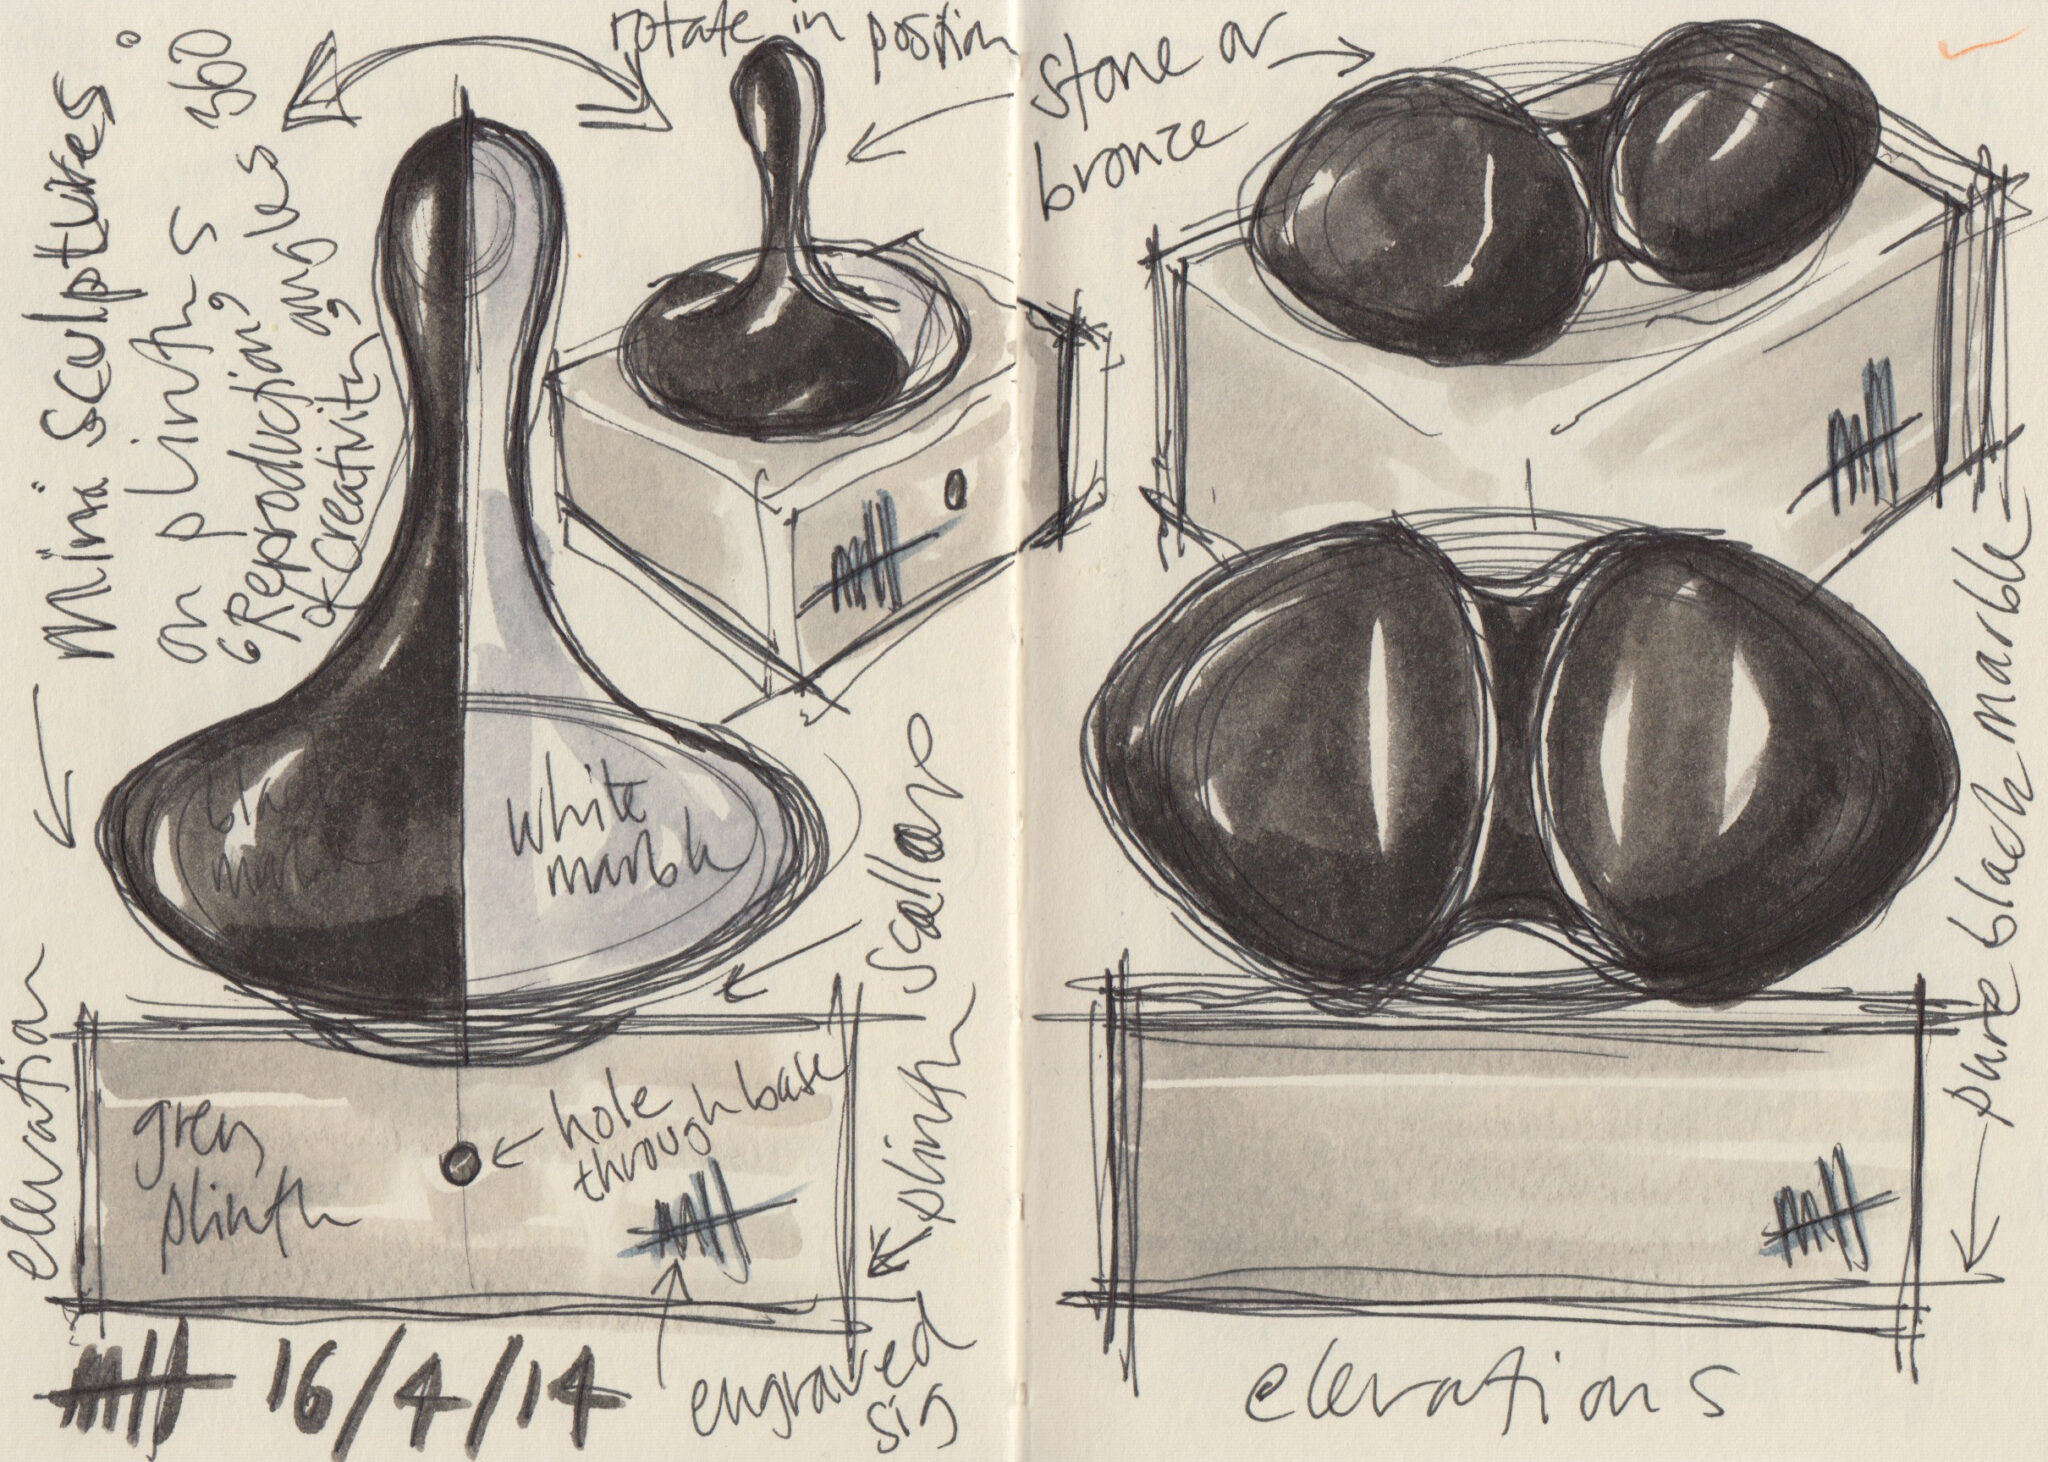 mini sculptures
on plinths 360
"Reproduction, angles
of creativity"
rotate in position
black
white
marble
elevation
scallop
plinth
grey
plinth
hole
through base
engraved
sig
16/4/14
stone or
bronze
pure black marble
elevations